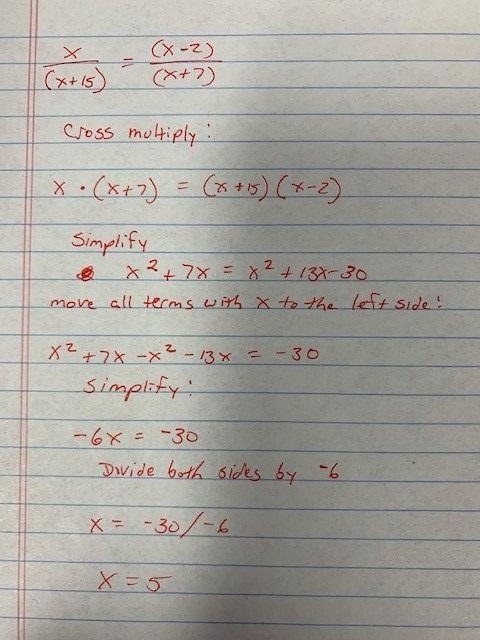 x/(x+15) = (x-2)/(x+7)
Cross multiply:
x · (x+7) = (x+15)(x-2)
Simplify
x² + 7x = x² + 13x-30
move all terms with x to the left side:
x² + 7x - x² - 13x = -30
Simplify:
-6x = -30
Divide both sides by -6
x = -30/-6
x = 5